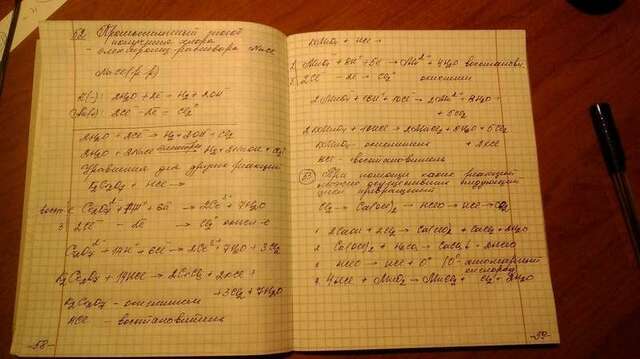 52 Промышленный способ
получения хлора
- электролиз раствора NaCl
NaCl (р-р)
K(-): 2H2O + 2e → H2 + 2OH-
A(+): 2Cl- - 2e = Cl2
2H2O + 2Cl- → H2 + 2OH- + Cl2
2H2O + 2NaCl → H2 + 2NaOH + Cl2
Уравнения для других реакций
K2Cr2O7 + HCl →
Cr2O7 2- + 14H+ + 6e → 2Cr 3+ + 7H2O
3 2Cl- - 2e → Cl2
Cr2O7 2- + 14H+ + 6Cl- → 2Cr 3+ + 7H2O + 3Cl2
K2Cr2O7 + 14HCl → 2CrCl3 + 2KCl +
+ 3Cl2 + 7H2O
K2Cr2O7 - окислитель
HCl - восстановитель
-58-
KMnO4 + HCl →
MnO4- + 8H+ + 5e → Mn 2+ + 4H2O
2Cl- - 2e → Cl2
2MnO4- + 16H+ + 10Cl- → 2Mn 2+ + 8H2O +
+ 5Cl2
2KMnO4 + 16HCl → 2MnCl2 + 8H2O + 5Cl2
+ 2KCl
KMnO4 - окислитель
HCl - восстановитель
При помощи каких реакций
можно осуществить следующие
превращения
Cl2 → Ca(OCl)2 → HClO → HCl → Cl2
2 Ca(OCl)2 + H2CO3 → CaCO3↓ + 2HClO
3 HClO → HCl + O° (O° - атомарный
кислород)
4 4HCl + MnO2 → MnCl2 + Cl2 + 2H2O
-59-